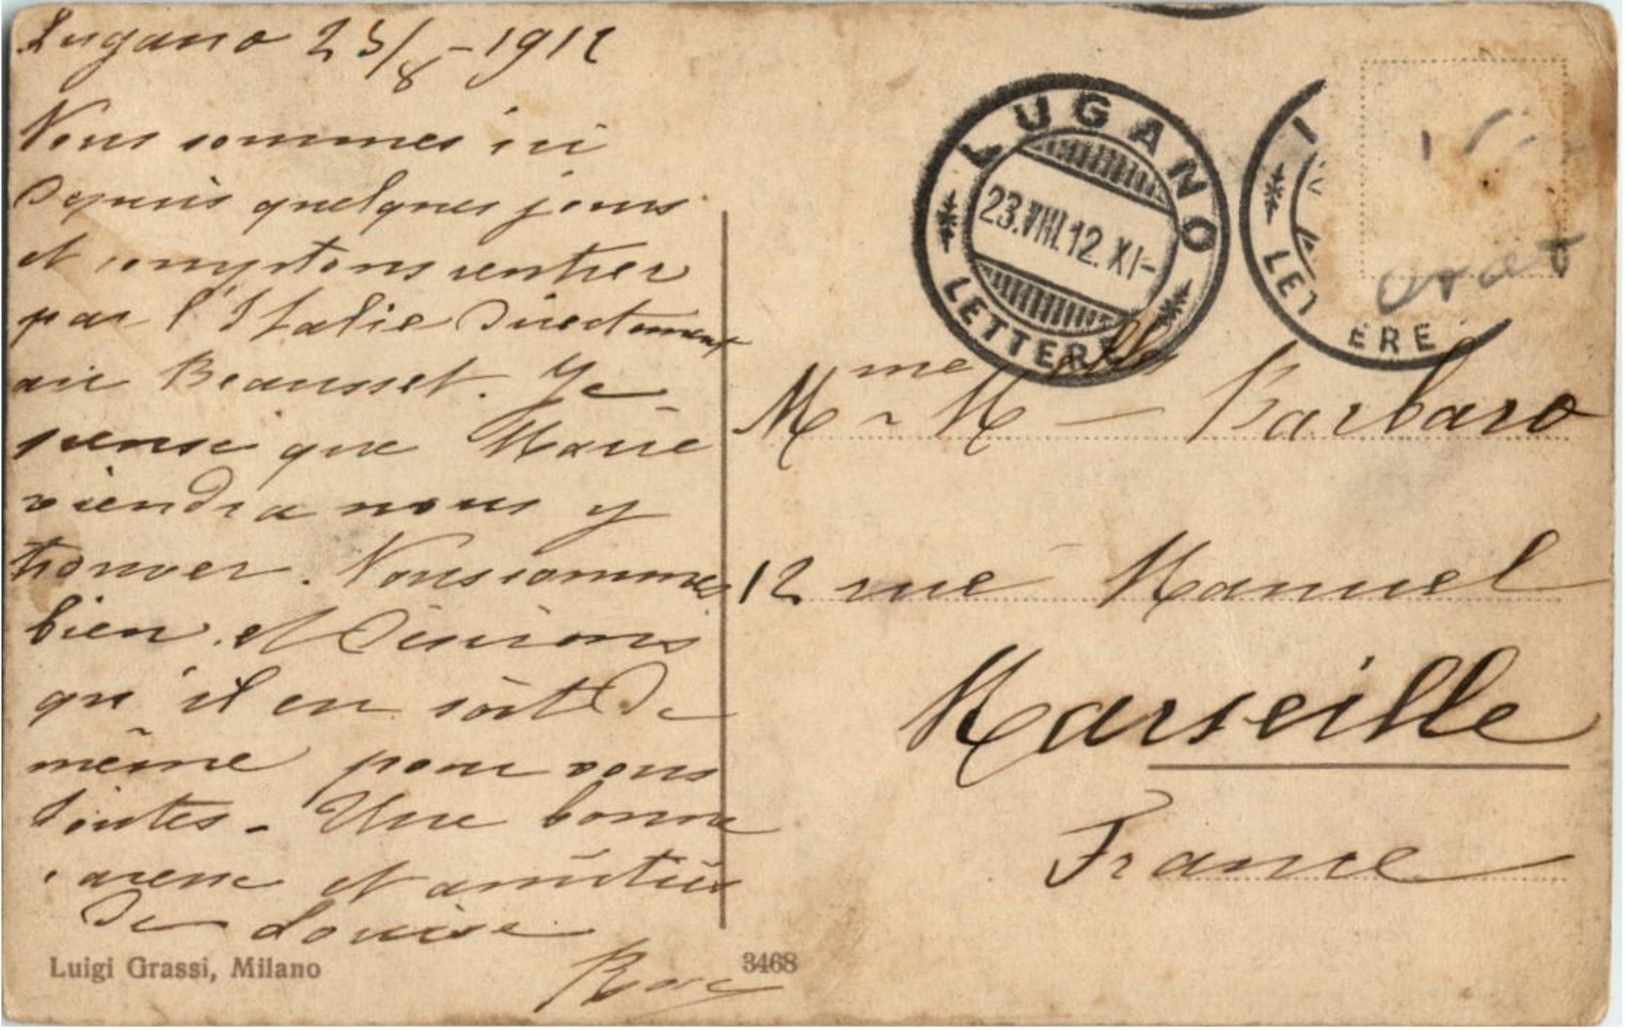 Lugano 23/8 - 1912
Nous sommes ici
Depuis quelques jours
et comptons rentrer
par l'Italie Directement
au Beausset. Je
pense que Marie
viendra nous y
trouver. Nous sommes
bien et Désirons
qu'il en soit De
même pour vous
toutes. Une bonne
caresse et amitiés
De Louise
Luigi Grassi, Milano
3468
LUGANO
23.VIII.12. XI-
LETTERE
LET
ERE
Mme & Mlles Barbaro
12 rue Manuel
Marseille
France